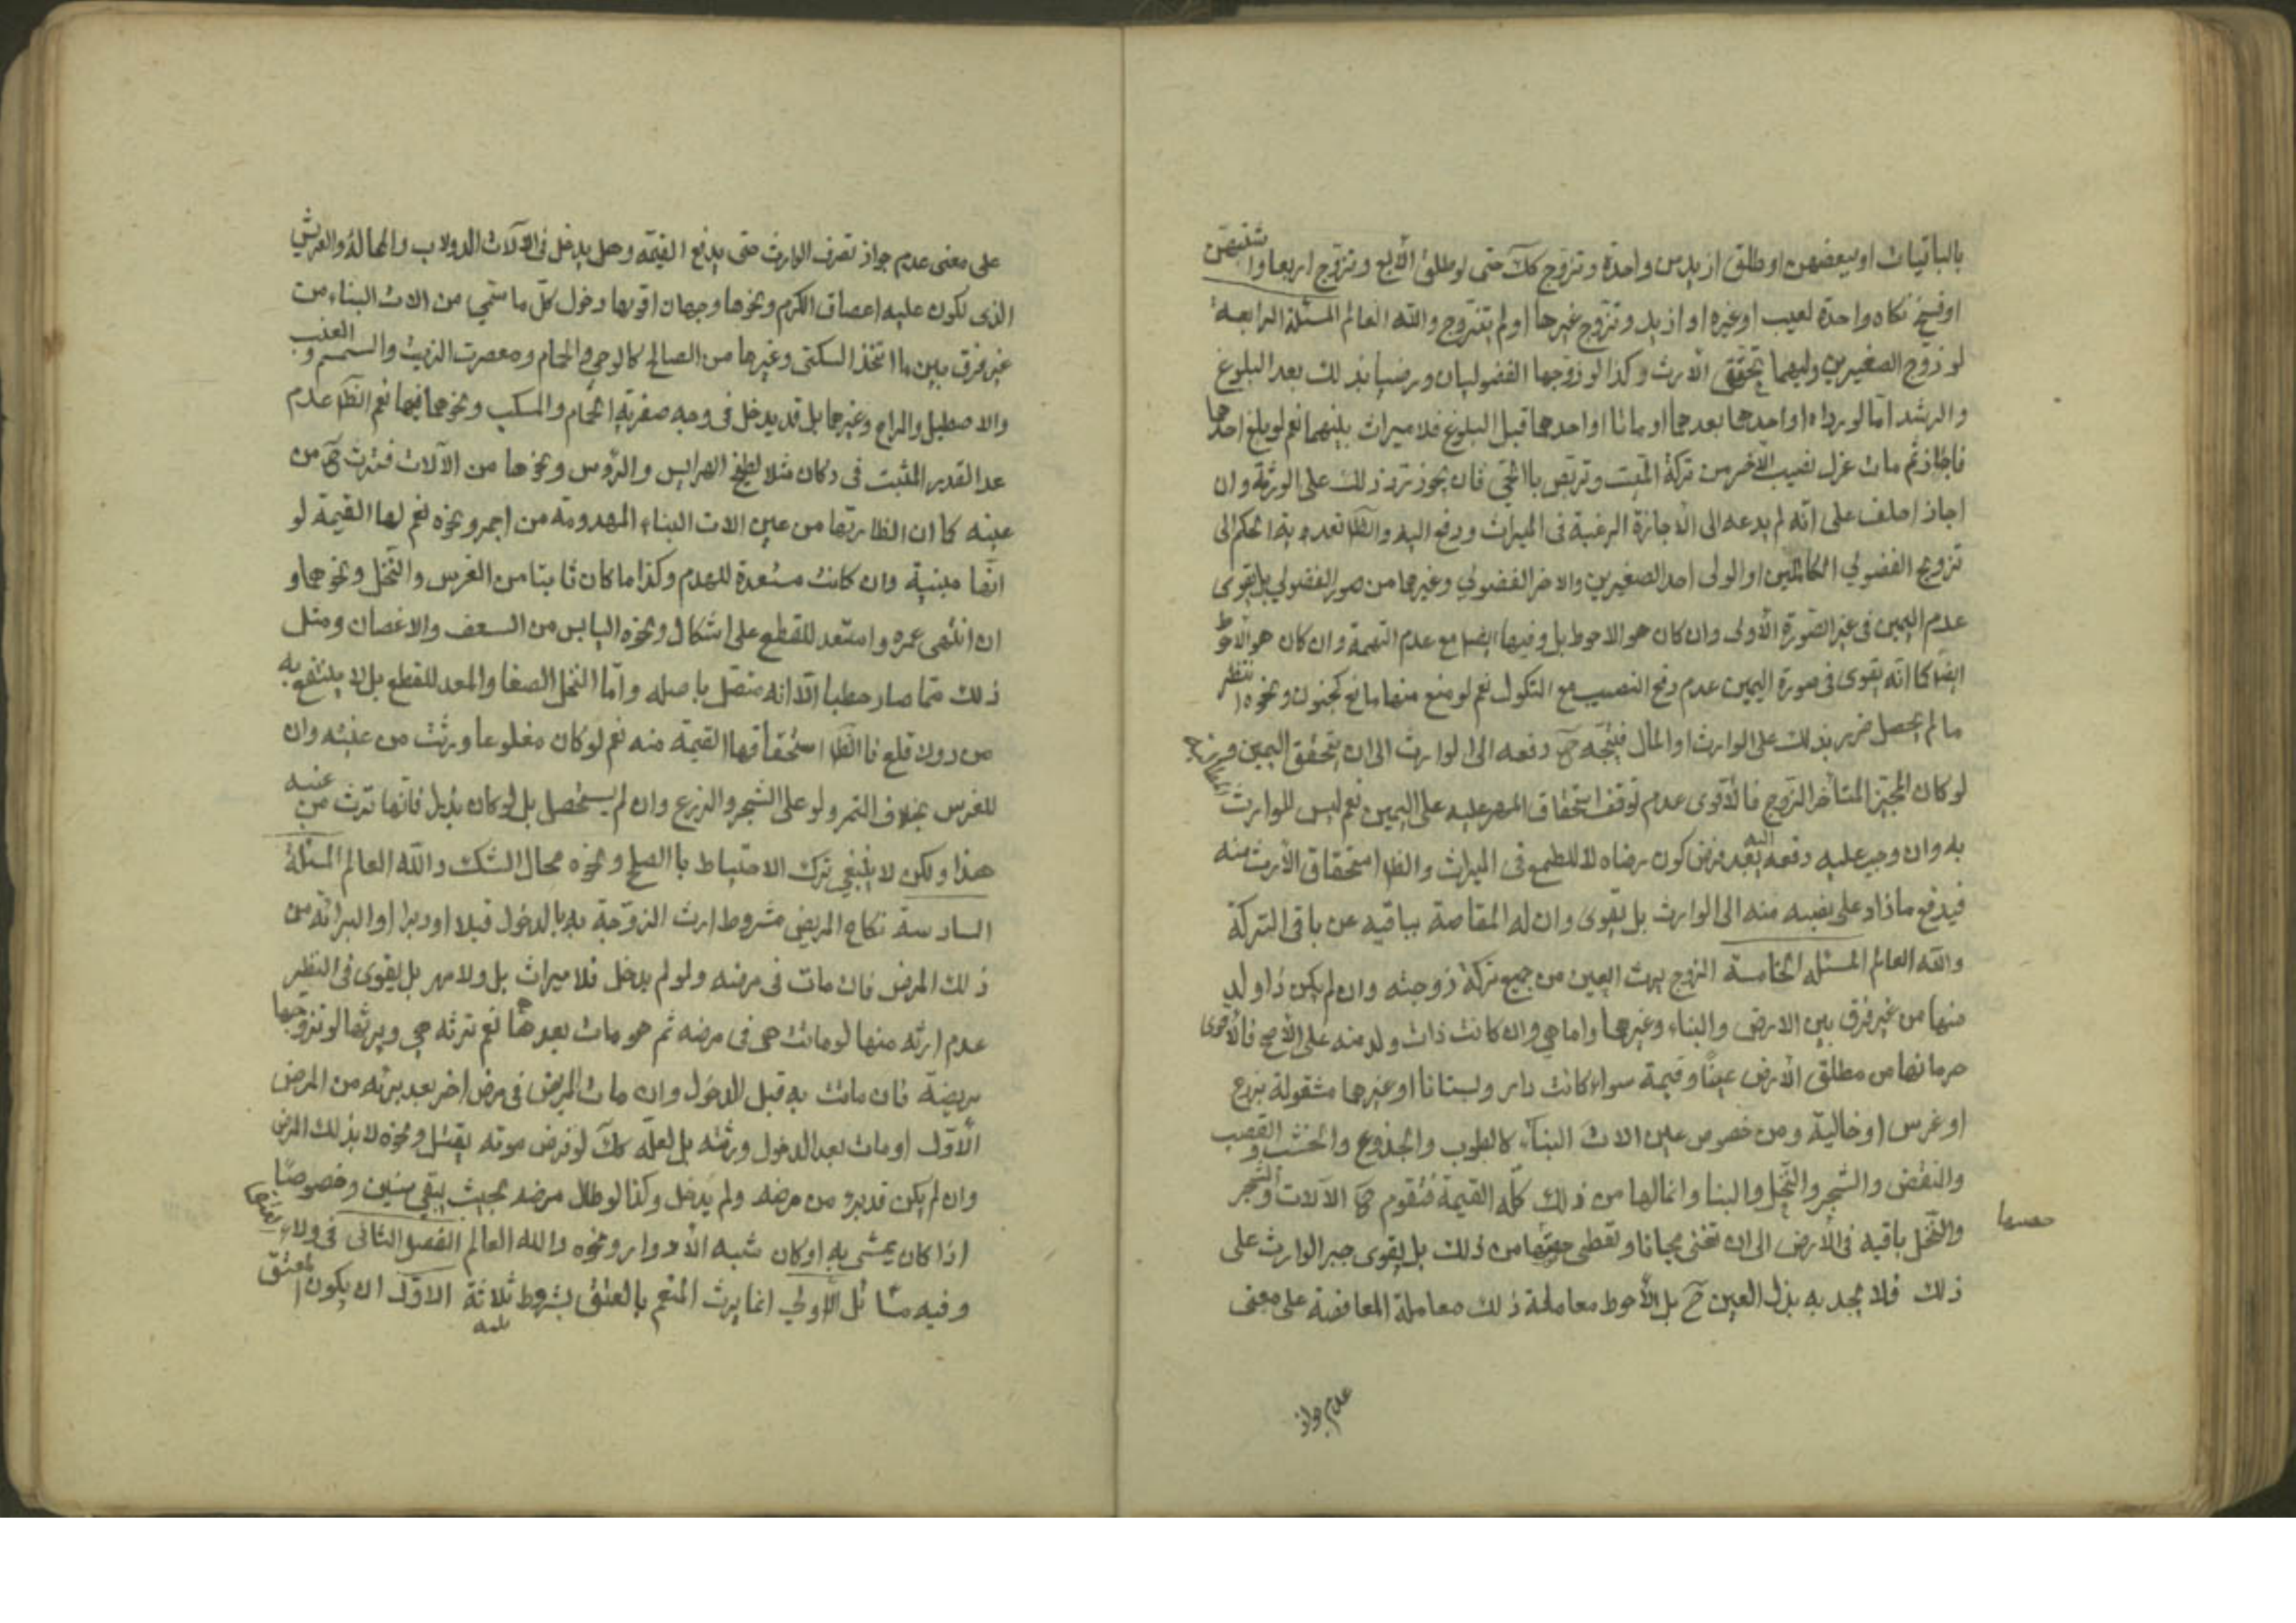 بالباقيات او ببعضهن او طلق ازيد من واحدة وتزوج كك حتى لو طلق الأربع وتزوج اربعا واشتبهن
او فسخ نكاح واحدة لعيب او غيره او ازيد وتزوج غيرها او لم يتزوج والله العالم المسئلة الرابعة
لو زوج الصغيرين وليهما يتحقق الارث وكذا لو زوجها الفضوليان ورضيا بذلك بعد البلوغ
والرشد امّا لو ردّاه او احدهما بعدهما او ماتا او احدهما قبل البلوغ فلا ميراث بينهما نعم لو بلغ احدهما
فاجاز ثم مات عزل نصيب الآخر من تركة الميّت وتربص بالحي فان يجوز ترد ذلك على الورثة وان
اجاز احلف على انه لم يدعه الى الاجازة الرغبة في الميراث ودفع اليه والظا تعدية الحكم الى
تزويج الفضولي الكاملين او الولى احد الصغيرين والاخر الفضولي وغيرهما من صور الفضولي بل يقوى
عدم اليمين في غير الصورة الأولى وان كان هو الاحوط بل وفيها ايضا مع عدم التهمة وان كان هو الاحوط
ايضا كما انه يقوى في صورة اليمين عدم دفع النصيب مع النكول نعم لو منع منها مانع كجنون ونحوه انتظر
ما لم يحصل ضرر بذلك على الوارث او المال فيتجه ح دفعه الى الوارث الى ان يتحقق اليمين
لو كان المجيز المتأخر الزوج فالأقوى عدم توقف استحقاق المهر عليه على اليمين نعم ليس للوارث
به وان وجب عليه دفعه اليه بعد فرض كون رضاه لا للطمع في الميراث والظا استحقاق الأرث منه
فيدفع مازاد على نصيبه منه الى الوارث بل يقوى وان له المقاصة بباقيه عن باقي التركة
والله العالم المسئلة الخامسة الزوج يرث العين من جميع تركة زوجته وان لم يكن ذا ولد
منها من غير فرق بين الارض والبناء وغيرهما واما هي وان كانت ذات ولد منه على الأصح فالأقوى
حرمانها من مطلق الأرض عينًا وقيمة سواء كانت دار وبستانا او غيرهما مشغولة بزرع
او غرس او خالية ومن خصوص عين الات البناء كالطوب والجذوع والخشب والقصب
والنقض والشجر والنخل والبنا وانما لها من ذلك كلّه القيمة فتقوم ح الآلات والشجر
والنخل باقيه في الأرض الى ان تفنى مجانا وتعطى حصتها من ذلك بل يقوى جبر الوارث على
حصتها
ذلك فلا يجديه بذل العين ح بل الأحوط معاملة ذلك معاملة المعاوضة على معنى
عدم جواز
على معنى عدم جواز تصرف الوارث حتى يدفع القيمة وهل يدخل في الآلات الدولاب والمحالة والعريش
الذى تكون عليه اعصاق الكرم ونحوها وجهان اقويها دخول كلّ ما سمّي من الات البناء من
غير فرق بين ما اتخذ السكنى وغيرها من المصالح كالوحي والحمام ومعصرت الزيت والسمسم والعنب
والاصطبل والمراح وغيرها بل قد يدخل في وجه صفرية الحمام والمسكب ونحوهما فيها نعم الظا عدم
عد القدير المثبت في دكان مثلا لطبخ الهرايس والرؤس ونحوها من الآلات فترث ح من
عينه كما ان الظا ارثها من عين الات البناء المهدومة من اجر ونحوه نعم لها القيمة لو
انّها مبنية وان كانت مستعدة للهدم وكذا ما كان ثابتا من الغرس والنخل ونحوهما و
ان انتهى عمره واستعد للقطع على اشكال ونحوه اليابس من السعف والاغصان ومثل
ذلك ممّا صار حطبا الّا انه متصل باصله وامّا النخل الصغا والمعد للقطع بل لا ينتفع به
من دون قلع فا الظا استحقاقها القيمة منه نعم لو كان مقلوعا ورثت من عينه وان
للغرس بخلاف الثمر ولو على الشجر والزرع وان لم يستحصل بل لو كان بذيل فانها ترث من عينه
هذا ولكن لا ينبغي ترك الاحتياط با الصلح ونحوه محال الشك والله العالم المسئلة
السادسة نكاح المريض مشروط ارث الزوجة به بالدخول قبلا او دبرا او البرائه من
ذلك المرض فان مات في مرضه ولو لم يدخل فلا ميراث بل ولا مهر بل يقوى في النظر
عدم ارثه منها لو ماتت هى في مرضه ثم هو مات بعدها نعم ترثه هي ويرثها لو تزوجها
مريضة فان ماتت به قبل الدخول وان مات المريض في مرض اخر بعد برئه من المرض
الأوّل او مات بعد الدخول ورثته بل لعلّه كك لو فرض موته بقتل ونحوه لا بذلك المرض
وان لم يكن قد برء من مرضه ولم يدخل وكذا لو طال مرضه بحيث يبقى سنين وخصوصًا
اذا كان يمشى به او كان شبه الأدوار ونحوه والله العالم الفصل الثاني في ولاء
وفيه مسائل الأولي انما يرث المنعم بالعتق بشروط ثلاثة الاوّل ان يكون المعتق